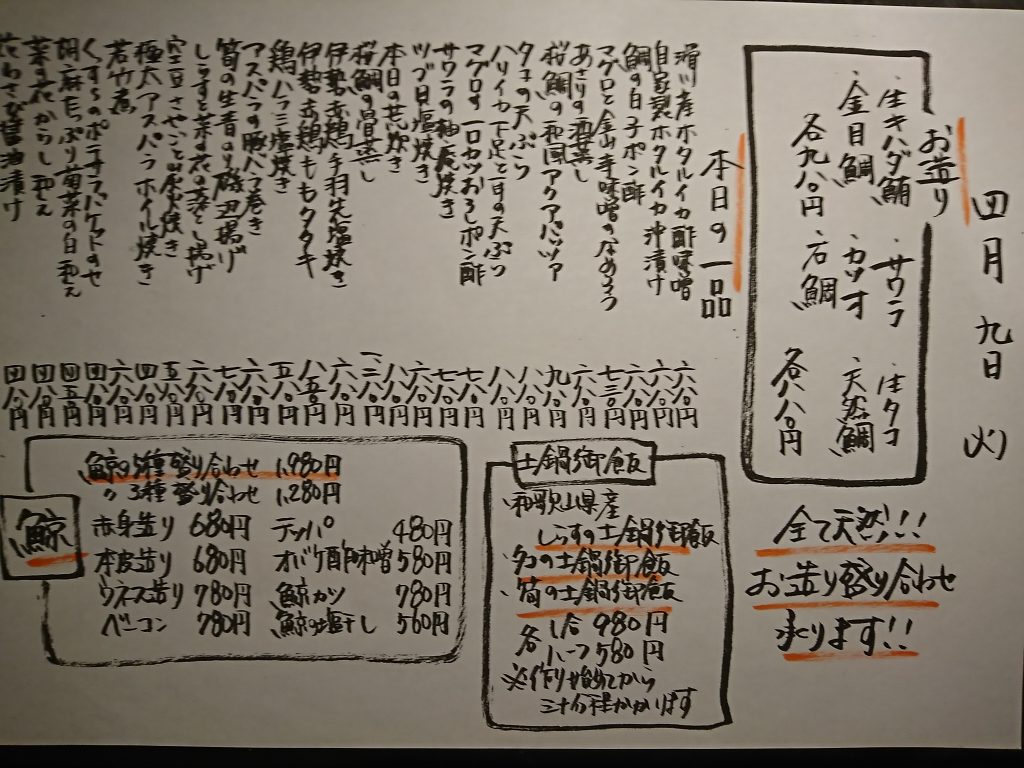 四月九日 火
お造り
・生キハダ鮪 ・サワラ ・生タコ
・金目鯛 ・カツオ ・天然鯛
各九八〇円 ・石鯛 各八八〇円
全て天然!!
お造り盛り合わせ
承ります!!
本日の一品
滑川産ホタルイカ酢味噌 六八〇円
自家製ホタルイカ沖漬け 六八〇円
鯛の白子ポン酢 六八〇円
マグロと金山寺味噌のなめろう 七三〇円
あさりの酒蒸し 六八〇円
桜鯛の和風アクアパッツァ 九八〇円
タコの天ぷら 八八〇円
ハリイカ下足と肝の天ぷら 八八〇円
マグロの一口カツおろしポン酢 七八〇円
サワラの柚庵焼き 七八〇円
ツブ貝塩焼き 六八〇円
本日の荒炊き 八八〇円
桜鯛の骨蒸し 一二八〇円
伊勢赤鶏手羽先塩焼き 六八〇円
伊勢赤鶏ももタタキ 八五〇円
鶏ハラミ塩焼き 五八〇円
アスパラの豚バラ巻き 六八〇円
筍の生青のり磯辺揚げ 七八〇円
しらすと菜の花の落とし揚げ 六八〇円
空豆さやごと炭火焼き 五八〇円
極太アスパラホイル焼き 四八〇円
若竹煮 六八〇円
くじらのポテサラバケットのせ 四八〇円
胡麻たっぷり菊菜の白和え 四五〇円
菜の花からし和え 四八〇円
花わさび醤油漬け 四八〇円
土鍋御飯
・和歌山県産
しらすの土鍋御飯
・タコの土鍋御飯
・筍の土鍋御飯
各 1合 980円
ハーフ 580円
※作り始めてから
三十分程かかります
鯨
鯨の5種盛り合わせ 1,980円
〃 3種盛り合わせ 1,280円
赤身造り 680円 テッパ 480円
本皮造り 680円 オバケ酢味噌 580円
ウネス造り 780円 鯨カツ 780円
ベーコン 780円 鯨の塩干し 560円